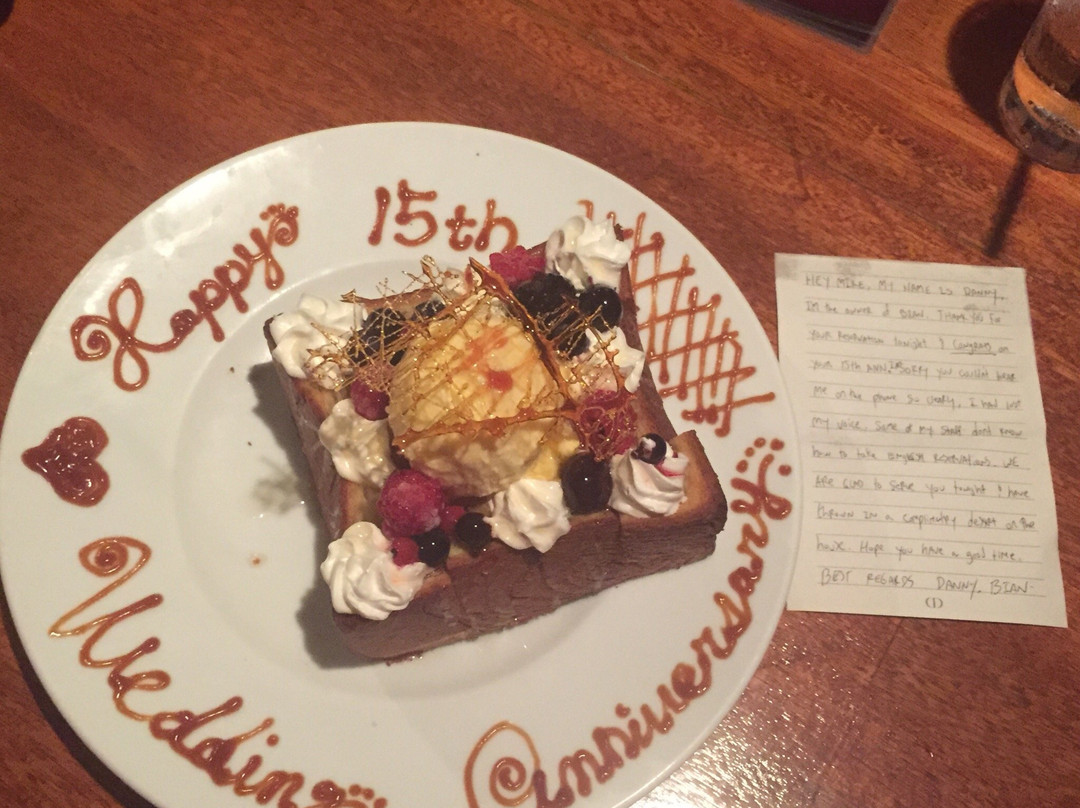 Happy 15th
Wedding
Anniversary
HEY MIKE, MY NAME IS DANNY,
IM the owner of BIAN. THANK YOU For
your Reservation tonight & congrats on
your 15th Ann. SORRY you couldnt hear
me on the phone so clearly, I had lost
My voice, some of my staff dont know
how to take RESERVATIONS. WE
ARE GLAD to serve you tonight & have
thrown in a complimentry desert on the
house. Hope you have a good time.
BEST REGARDS DANNY. BIAN.